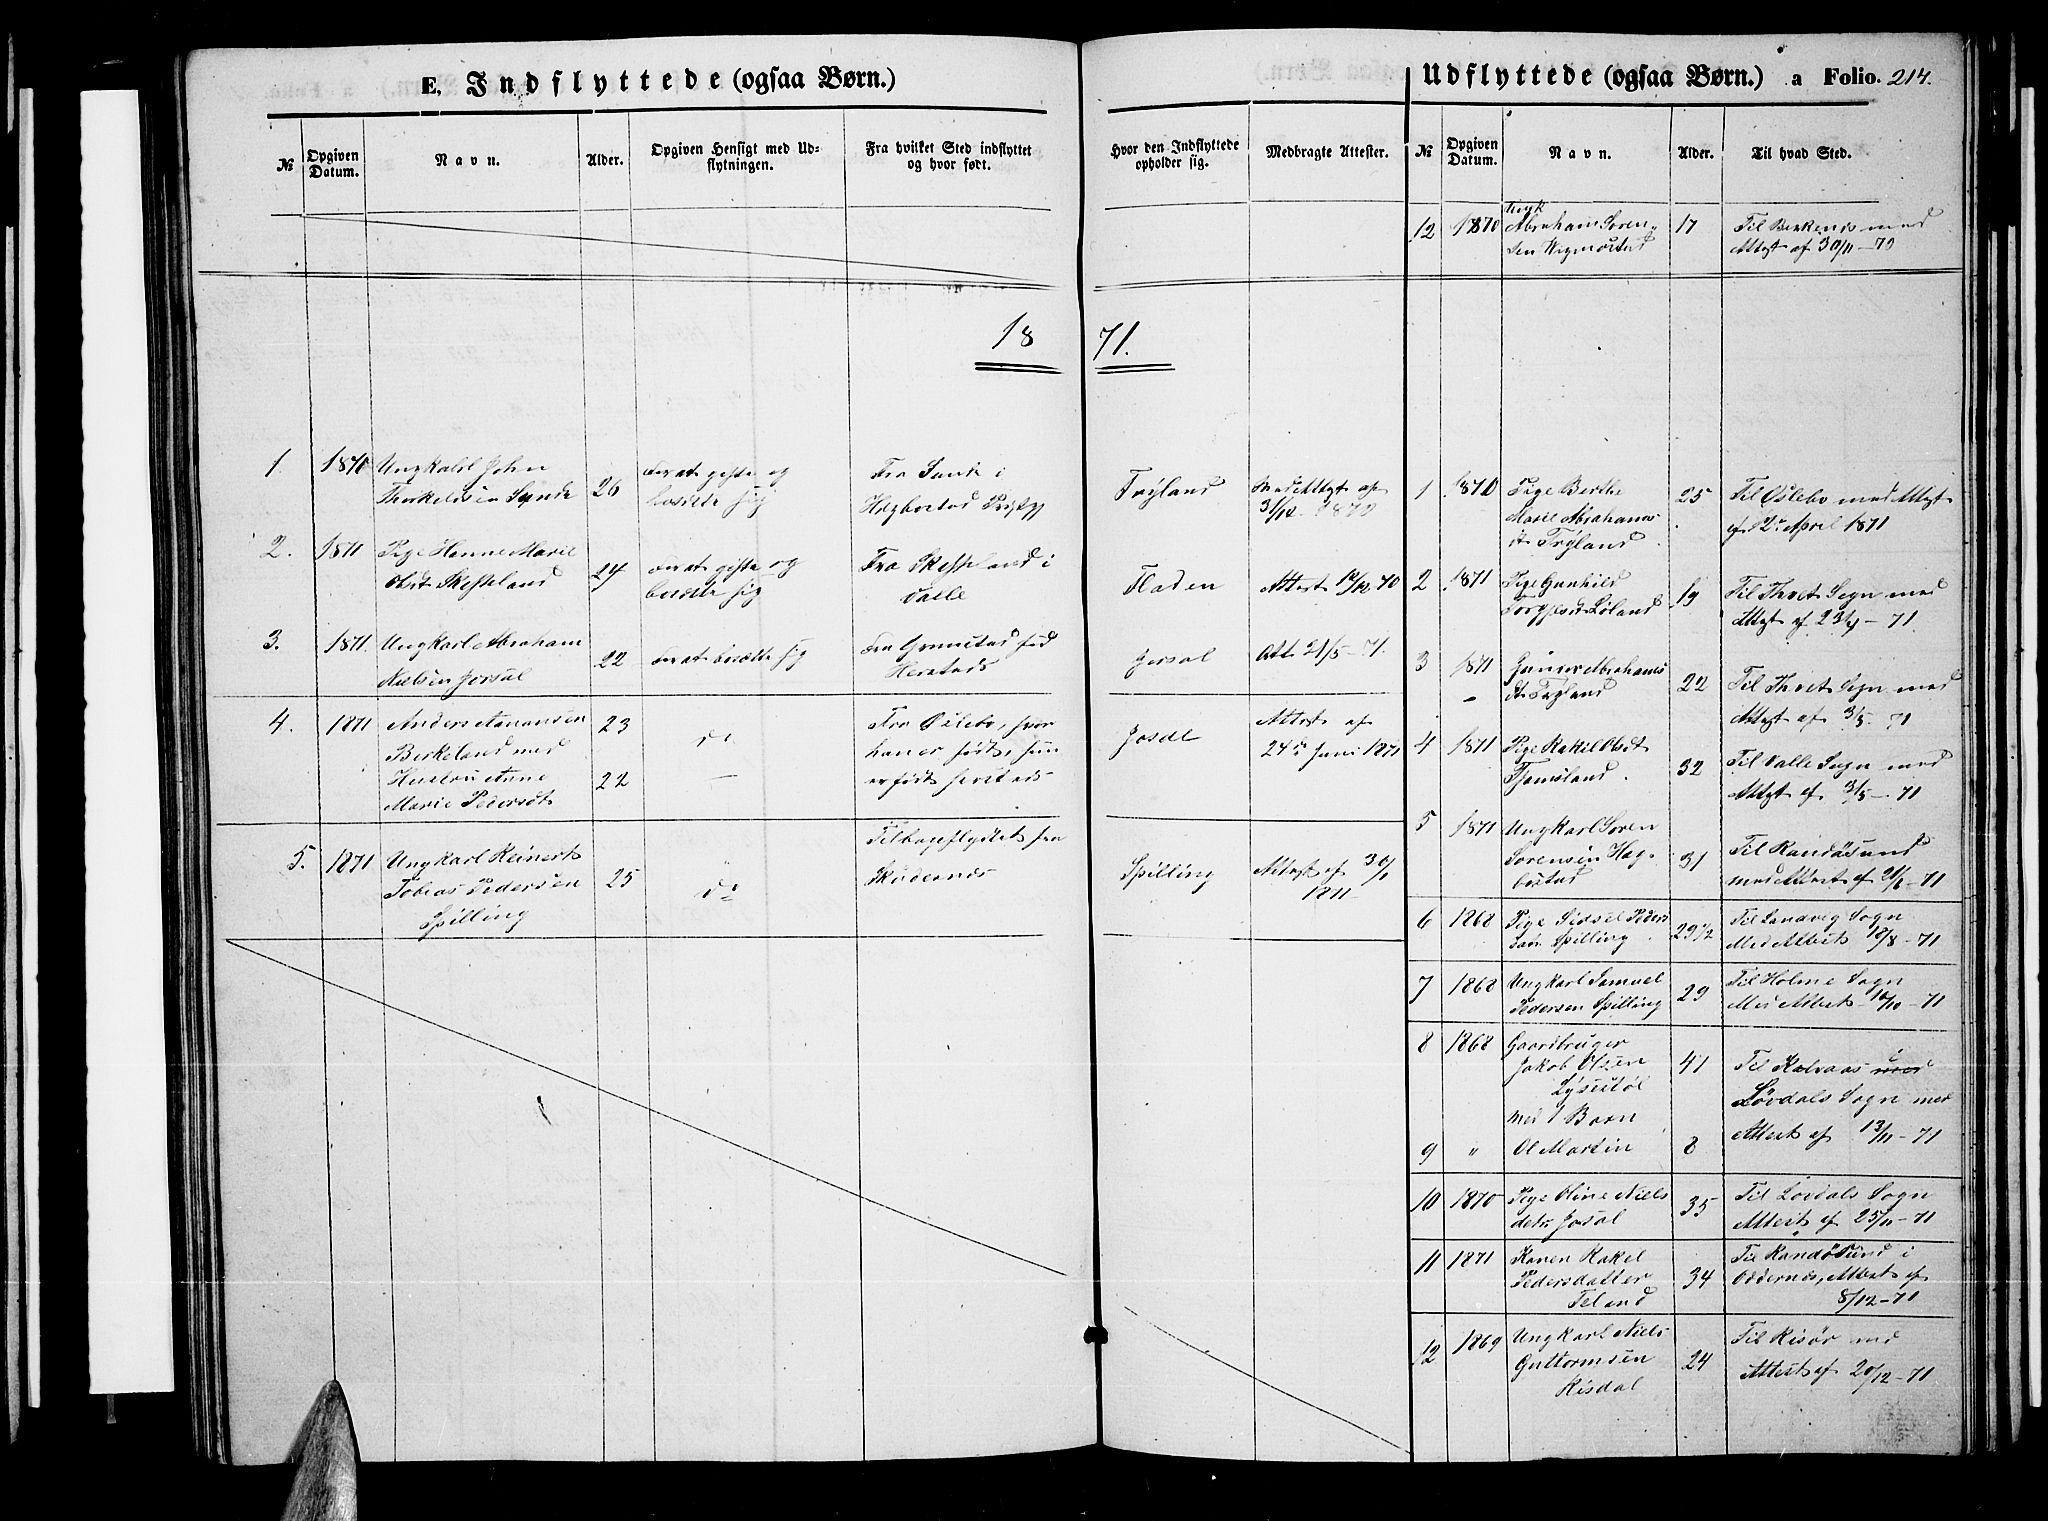 E. Indflyttede (ogsaa Børn.)
№
Opgiven Datum.
Navn.
Alder.
Opgiven Hensigt med Udflytningen.
Fra hvilket Sted indflyttet og hvor født.
Hvor den Indflyttede opholder sig.
Medbragte Attester.
18 71.
1. 1870 Ungkarl John
Thorkeldsen Sande 26 For at gifte og
bosætte sig
Fra Sande i
Hægbostad Præstgj
Tryland
Med Attest af
3/12 1870
2. 1871 Pige Hanne Marie
Olsdt Skeffeland 24 For at gifte og
bosætte sig
Fra Skeffeland i
Valle
Fladen
Attest 12/12 70
3. 1871. Ungkarl Abraham
Nielsen Josal 22 For at bosætte sig
Fra Grimstad fød
Herstads
Josal
Att. 21/5-71.
4. 1871 Anders Aanonsen 23
Birkeland med
Hustru Anne 22
Marie Pedersdt
do
Fra Øslebø, hvor
han er født, hun
er født herstads
Josal
Attest af
24de Juni 1871
5. 1871 Ungkarl Reinert
Tobias Pedersen 25
Spilling
do
Tilbageflyttet fra
Skudesnæs
Spilling
Attest af 30/
1871
Udflyttede (ogsaa Børn.) a Folio. 214.
№
Opgiven Datum.
Navn.
Alder.
Til hvad Sted.
12 1870 Abraham Søren-
sen Wigmostad 17 Til Birkenes med
Attst af 30/11-70
1 1870 Pige Berthe
Marie Abrahams
dt Tryland 25 Til Øslebø med Attst
af 12te April 1871
2 1871 Pige Gunhild
Torgjersdt Løland 19 Til Thveit Sogn med
Attst af 23/4-71
3 1871 Gunvor Abrahams
dt Tryland 22 Til Thveit Sogn med
Attst af 3/5-71
4 1871 Pige Rakel Olsdt
Tjomsland 32 Til Valle Sogn med
Attst af 3/5-71
5 1871 Ungkarl Søren
Sørensen Hæg-
bostad 31 Til Randøsund
med Attest af 21/6-71
6 1868 Pige Sidsel Peders
datr Spilling 29 1/2 Til Landvig Sogn
Med Attest 18/8-71
7 1868 Ungkarl Samuel
Pedersen Spilling 29 Til Holme Sogn
Med Attest 10/10-71
8 1868 Gaardbruger
Jakob Olsen 41
Lysestøl
med 1 Barn
9 " Ol Martin 8
Til Kalvaas i
Løvdals Sogn med
Attest af 13/11-71
10 1870 Pige Oline Niels
datr Josal 35 Til Løvdals Sogn
Attest af 25/11-71
11 1871 Konen Rakel
Pedersdatter
Teland 34 Til Randøsund i
Oddernes, Attest af
8/12-71
12 1869 Ungkarl Niels
Guttormsen
Risdal 24 Til Risør med
Attest af 20/12-71